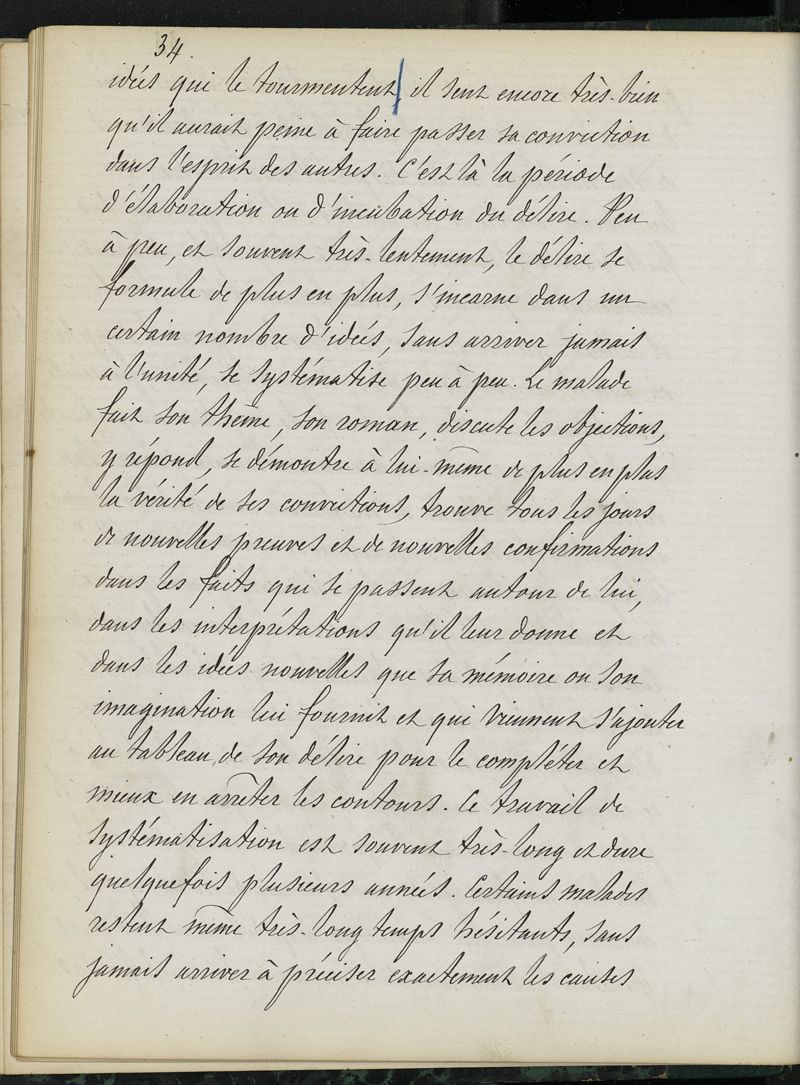 34.
idées qui le tourmentent, il sent encore très-bien
qu'il aurait peine à faire passer sa conviction
dans l'esprit des autres. C'est là la période
d'élaboration ou d'incubation du délire. Peu
à peu, et souvent très-lentement, le délire se
formule de plus en plus, s'incarne dans un
certain nombre d'idées, sans arriver jamais
à l'unité, se systématise peu à peu. Le malade
fait son thême, son roman, discute les objections,
y répond, se démontre à lui-même de plus en plus
la vérité de ses convictions, trouve tous les jours
de nouvelles preuves et de nouvelles confirmations
dans les faits qui se passent autour de lui,
dans les interprétations qu'il leur donne et
dans les idées nouvelles que sa mémoire ou son
imagination lui fournit et qui viennent s'ajouter
au tableau de son délire pour le compléter et
mieux en arrêter les contours. Ce travail de
systématisation est souvent très-long et dure
quelquefois plusieurs années. Certains malades
restent même très-long temps hésitants, sans
jamais arriver à préciser exactement les causes